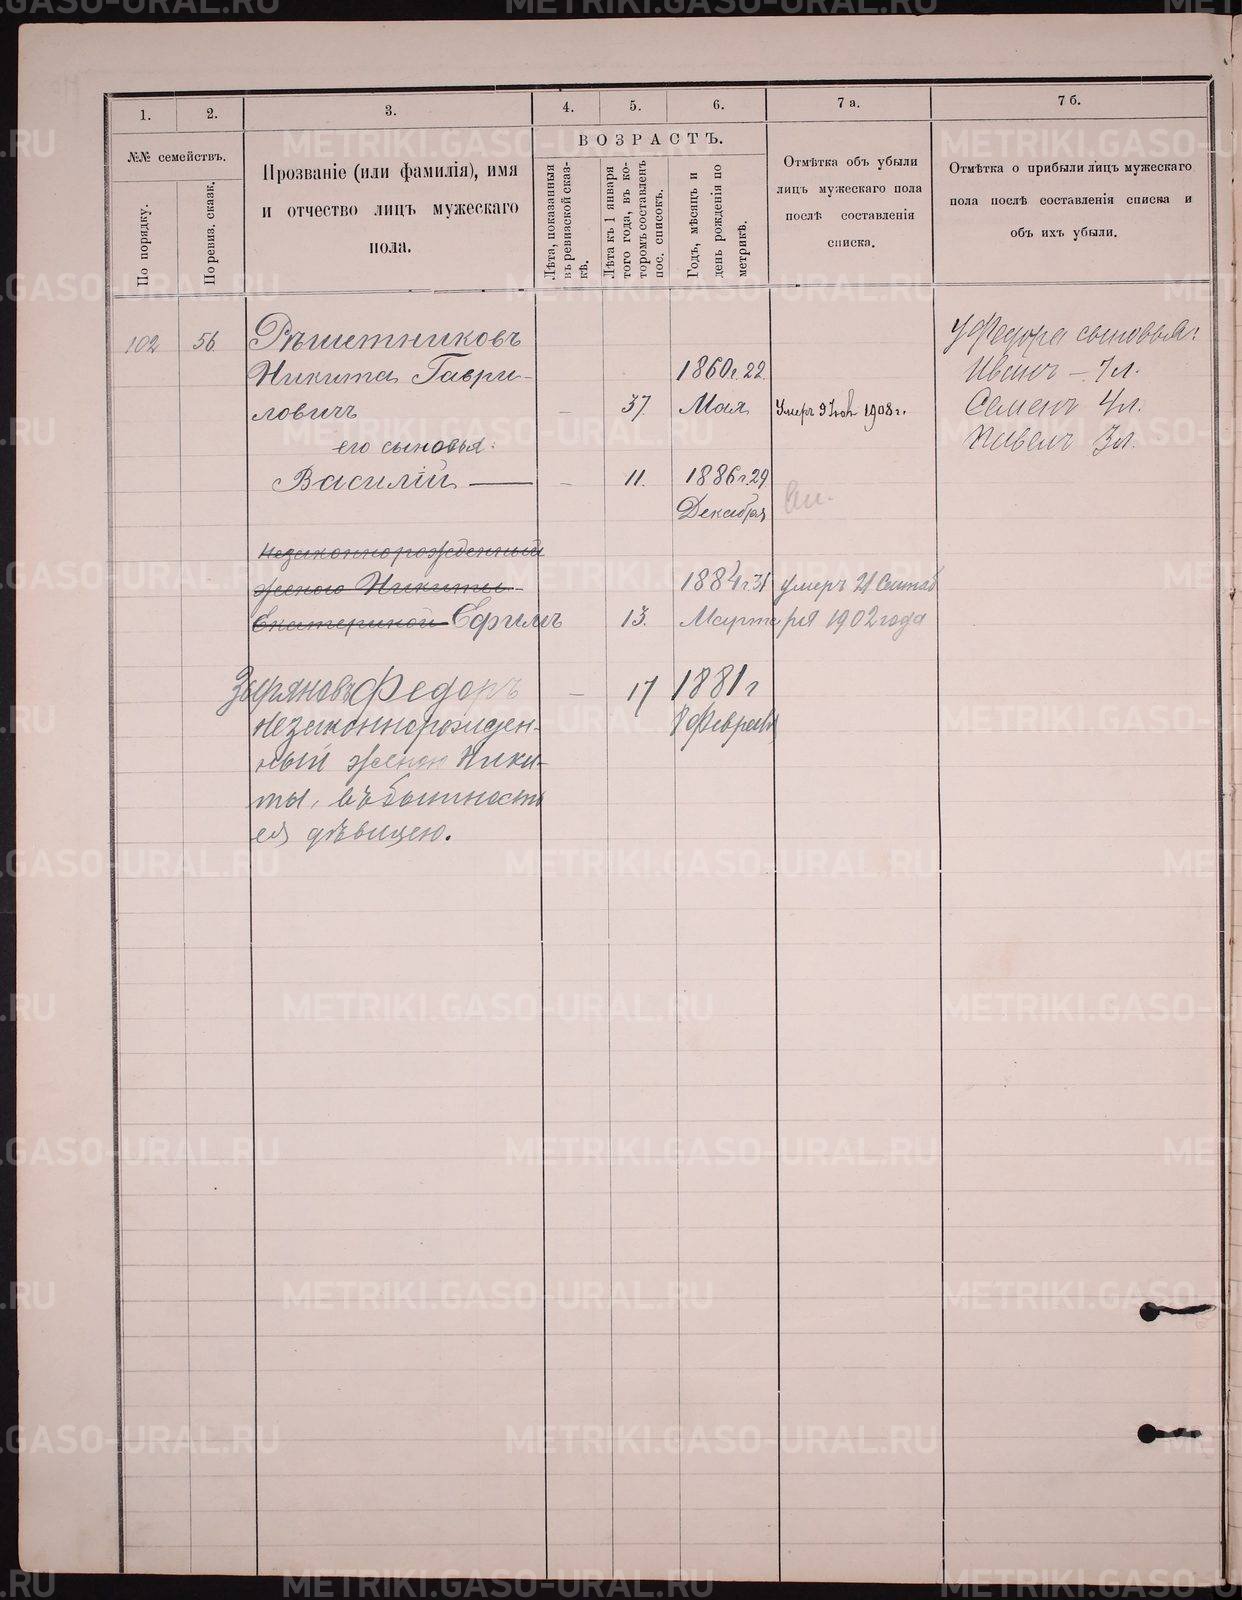 1.
2.
3.
4.
5.
6.
7 а.
7 б.
№№ семействъ.
По порядку.
По ревиз. сказк.
Прозваніе (или фамилія), имя
и отчество лицъ мужескаго
пола.
ВОЗРАСТЪ.
Лѣта, показанныя
въ ревизской сказ-
кѣ.
Лѣта къ 1 января
того года, въ ко-
торомъ составленъ
пос. списокъ.
Годъ, мѣсяцъ и
день рожденія по
метрикѣ.
Отмѣтка объ убыли
лицъ мужескаго пола
послѣ составленія
списка.
Отмѣтка о прибыли лицъ мужескаго
пола послѣ составленія списка и
объ ихъ убыли.
102 56 Рѣшетниковъ
Никита Гаври-
ловичъ – 37 1860 г. 22
Мая Умеръ 9 1908 г.
его сыновья:
Василій – 11. 1886 г. 29
Декабря
Незаконнорожденный
женою Никиты
Екатериной Ефимъ 13. 1884 г. 31
Марта умеръ 21 Сентяб
ря 1902 года
Зыряновъ Федоръ – 17 1881 г
8 Февраля
незаконнорожден-
ный женой Ники-
ты, въ бытность
ея дѣвицею.
У Федора сыновья:
Иванъ – 7 л.
Семенъ 4 л.
Павелъ 3 л.
METRIKI.GASO-URAL.RU